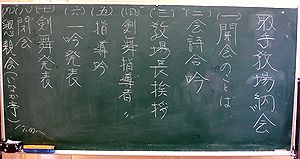 取手教場納会
(一)開会のことば
(二)会詩合吟
(三)教場長挨拶
(四)剣舞指導者〃
(五)指導吟
(六)吟発表
(七)剣舞発表
(八)閉会
(九)懇親会(いなか亭)